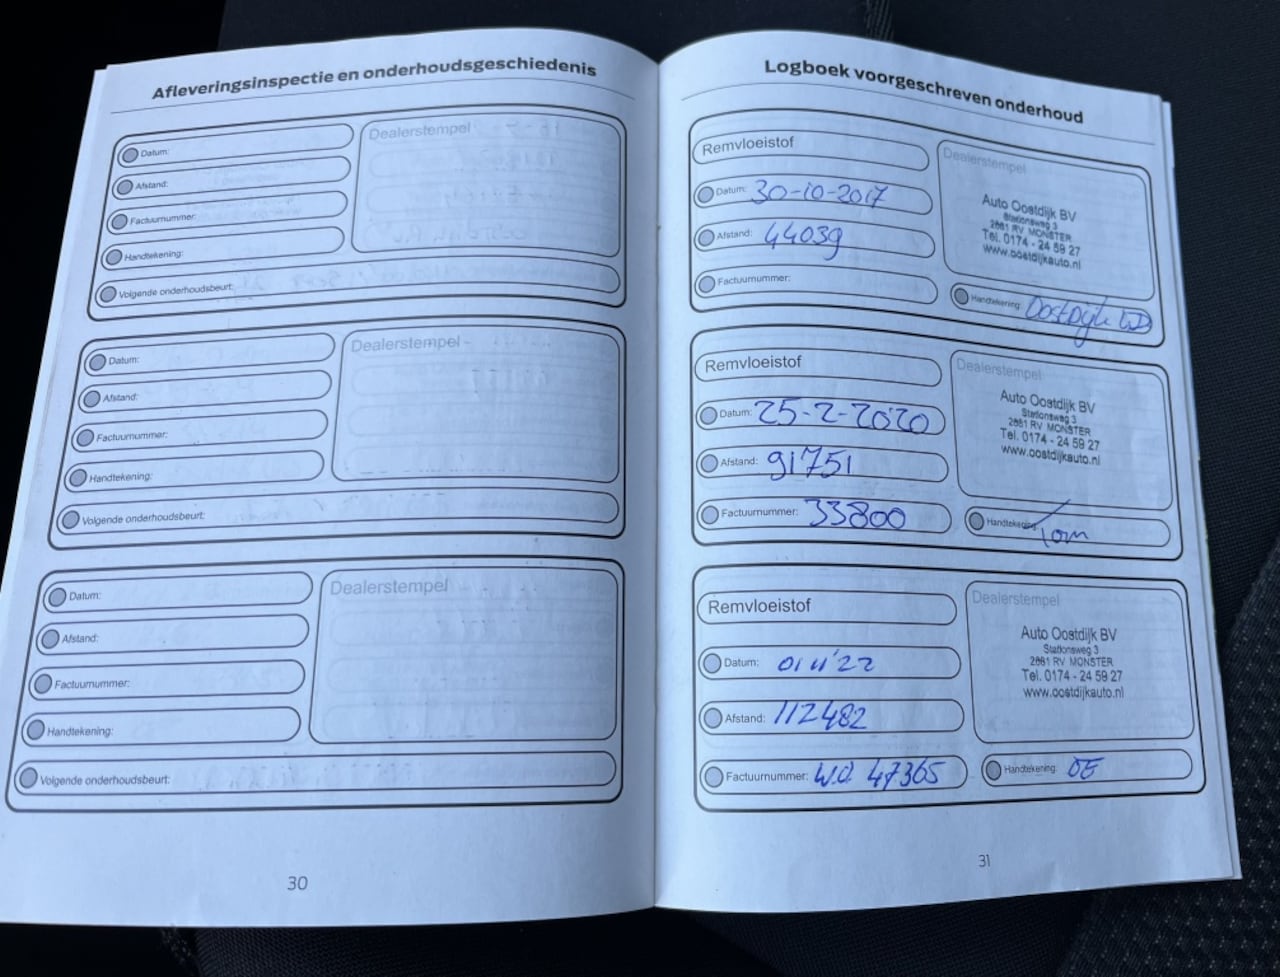 Afleveringsinspectie en onderhoudsgeschiedenis
Datum:
Afstand:
Factuurnummer:
Handtekening:
Volgende onderhoudsbeurt:
Dealerstempel
Datum:
Afstand:
Factuurnummer:
Handtekening:
Volgende onderhoudsbeurt:
Dealerstempel
Datum:
Afstand:
Factuurnummer:
Handtekening:
Volgende onderhoudsbeurt:
Dealerstempel
30
Logboek voorgeschreven onderhoud
Remvloeistof
Datum: 30-10-2017
Afstand: 44039
Factuurnummer:
Dealerstempel
Auto Oostdijk BV
Stationsweg 3
2681 RV MONSTER
Tel. 0174 - 24 59 27
www.oostdijkauto.nl
Handtekening: Oostdijk
Remvloeistof
Datum: 25-2-2020
Afstand: 91751
Factuurnummer: 33800
Dealerstempel
Auto Oostdijk BV
Stationsweg 3
2681 RV MONSTER
Tel. 0174 - 24 59 27
www.oostdijkauto.nl
Handtekening: Tom
Remvloeistof
Datum: 01 11 '22
Afstand: 112482
Factuurnummer: W.O. 47365
Dealerstempel
Auto Oostdijk BV
Stationsweg 3
2681 RV MONSTER
Tel. 0174 - 24 59 27
www.oostdijkauto.nl
Handtekening: DE
31